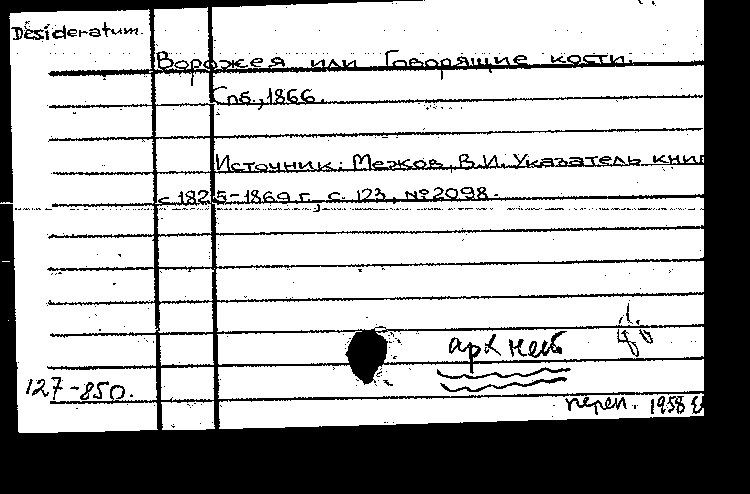 Desideratum.
Ворожея или Говорящие кости.
Спб., 1866.
Источник: Межов, В.И. Указатель книг
с 1825-1869 г., с. 123, №2098.
арх
127-850.
переп. 1958